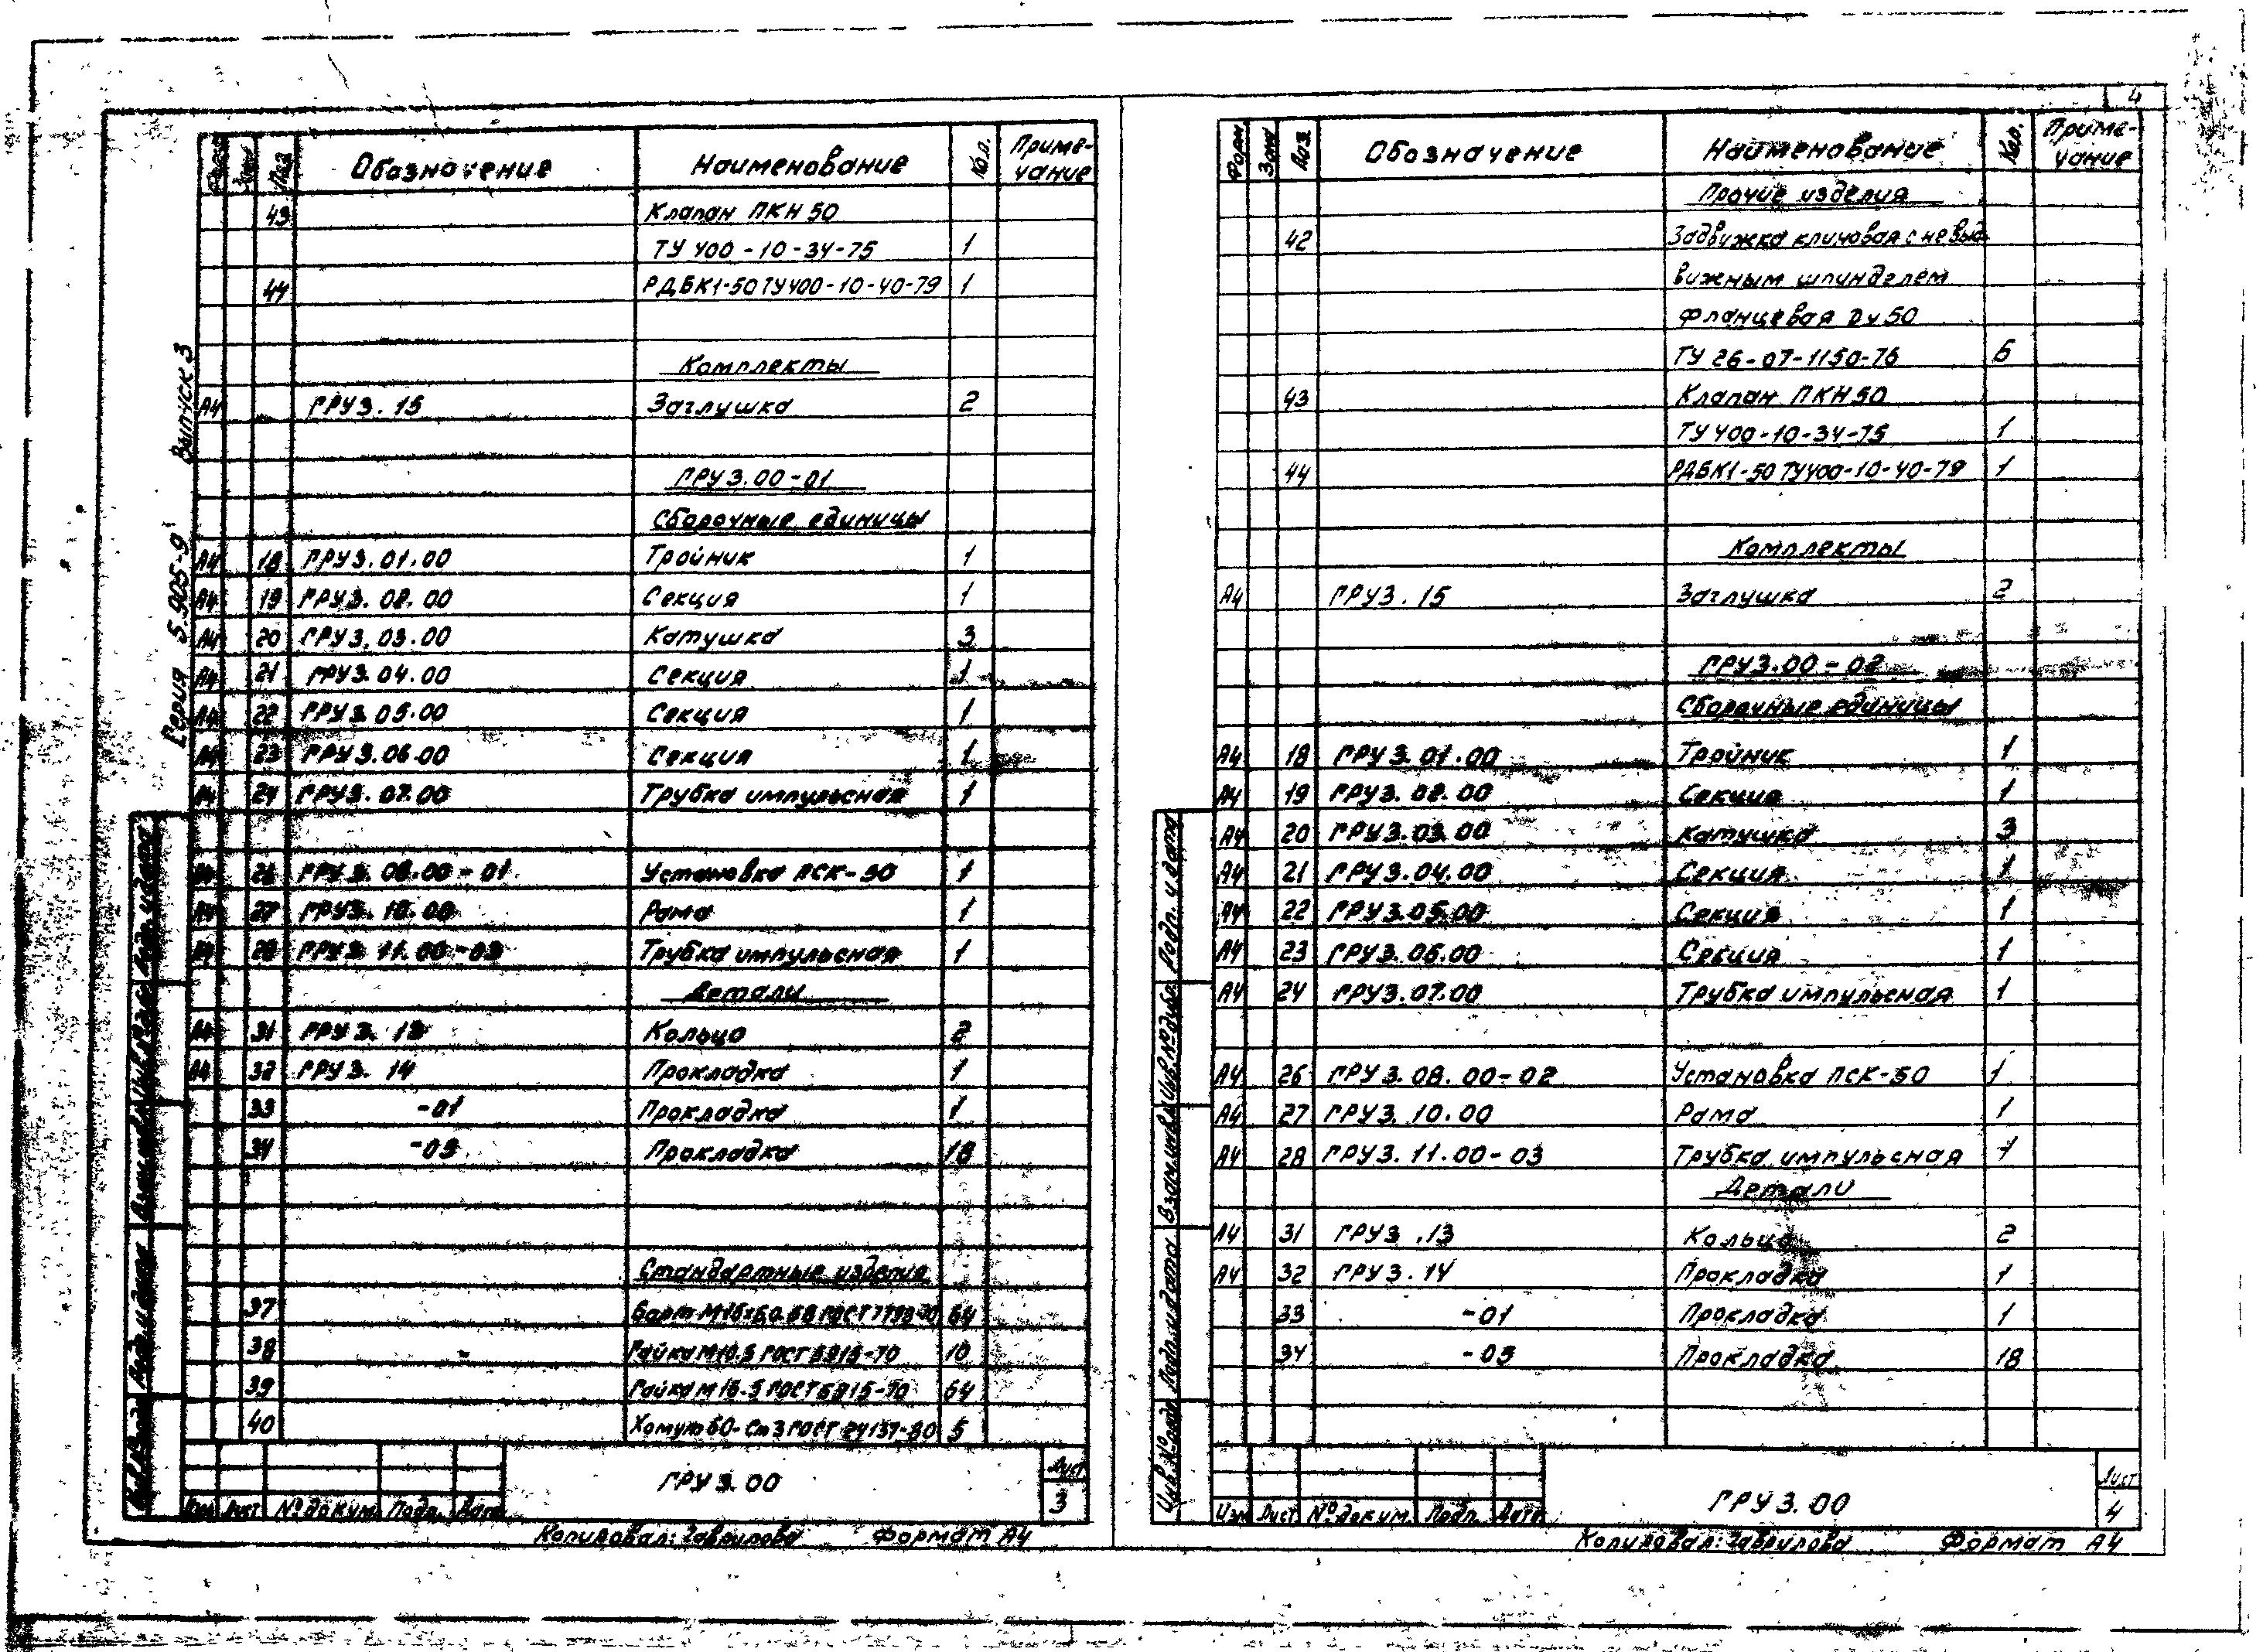 4
Серия 5.905-9 Выпуск 3
Обозначение Наименование Кол. Приме-
чание
43 Клапан ПКН 50
ТУ 400-10-34-75 1
44 РДБК1-50 ТУ 400-10-40-79 1
Комплекты
А4 ГРУ 3. 15 Заглушка 2
ГРУ 3.00-01
Сборочные единицы
А4 18 ГРУ 3.01.00 Тройник 1
А4 19 ГРУ 3. 02. 00 Секция 1
А4 20 ГРУ 3. 03.00 Катушка 3
А4 21 ГРУ 3. 04.00 Секция 1
А4 22 ГРУ 3 05.00 Секция 1
А4 23 ГРУ 3.06.00 Секция 1
А4 24 ГРУ 3. 07.00 Трубка импульсная 1
А4 26 ГРУ 3. 08.00-01 Установка ПСК-50 1
А4 27 ГРУ 3. 10.00 Рама 1
А4 28 ГРУ 3 11.00-03 Трубка импульсная 1
Детали
А4 31 ГРУ 3. 13 Кольцо 2
А4 32 ГРУ 3. 14 Прокладка 1
33 -01 Прокладка 1
34 Прокладка 18
Стандартные изделия
37 64
38 Гайка М10.5 ГОСТ 5915-70 10
39 Гайка М16.5 ГОСТ 5915-70 64
40 Хомут 60-Ст3 ГОСТ 24137-80 5
Изм Лист № докум. Подп. Дата
ГРУ 3.00
Лист
3
Копировал: Гаврилова Формат А4
Форм. Зона Поз. Обозначение Наименование Кол. Приме-
чание
Прочие изделия
42 Задвижка клиновая с невыд-
вижным шпинделем
фланцевая Ду 50
ТУ 26-07-1150-76 6
43 Клапан ПКН 50
ТУ 400-10-34-75 1
44 РДБК1-50 ТУ400-10-40-79 1
Комплекты
А4 ГРУ 3. 15 Заглушка 2
ГРУ 3.00-02
Сборочные единицы
А4 18 ГРУ 3. 01.00 Тройник 1
А4 19 ГРУ 3. 02. 00 Секция 1
А4 20 ГРУ 3. 03. 00 Катушка 3
А4 21 ГРУ 3. 04. 00 Секция 1
А4 22 ГРУ 3.05.00 Секция 1
А4 23 ГРУ 3. 06.00 Секция 1
А4 24 ГРУ 3.07.00 Трубка импульсная 1
А4 26 ГРУ 3. 08. 00-02 Установка ПСК-50 1
А4 27 ГРУ 3. 10.00 Рама 1
А4 28 ГРУ 3. 11.00-03 Трубка импульсная 1
Детали
А4 31 ГРУ 3 .13 Кольцо 2
А4 32 ГРУ 3. 14 Прокладка 1
33 -01 Прокладка 1
34 Прокладка 18
Инв.№ подл. Подп. и дата Взам.инв.№ Инв.№ дубл. Подп. и дата
Изм Лист № докум. Подп. Дата
ГРУ 3.00
Лист
4
Копировал: Гаврилова Формат А4